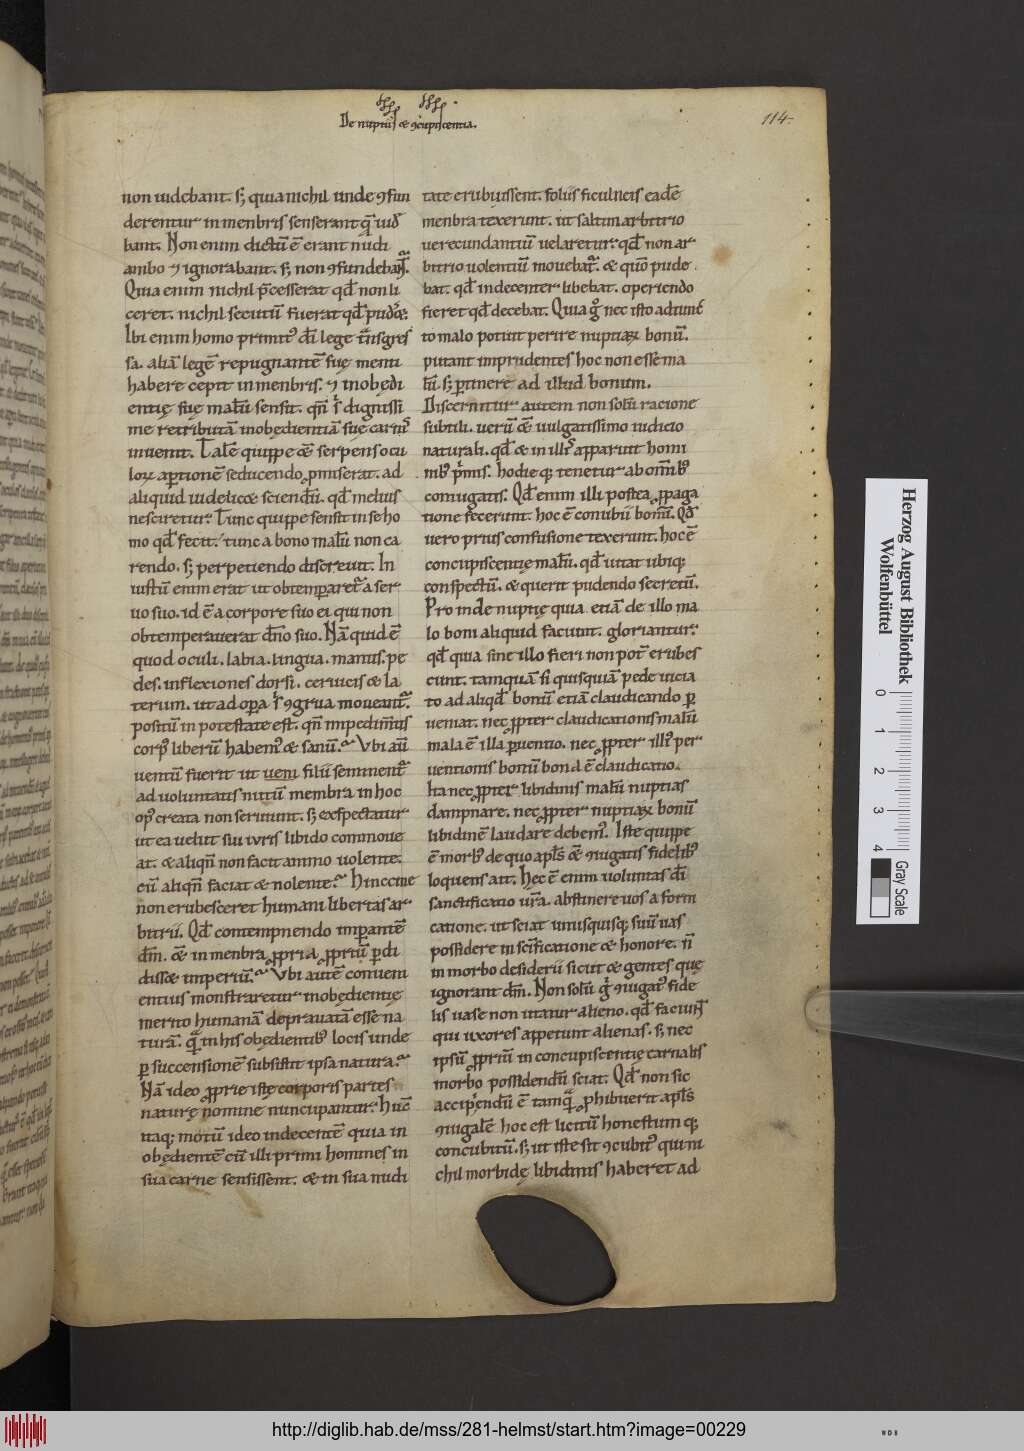 De nuptiis & ꝯcupiscentia.
114.
non uidebant. sꝫ quia nichil unde ꝯfun
derentur in menbris senserant q̄ uid̄
bant. Non enim dictū ē erant nudi
ambo ⁊ ignorabant. sꝫ non ꝯfundebant̄.
Quia enim nichil p̄cesserat qd̄ non li
ceret. nichil secutū fuerat qd̄ puderet.
Ibi enim homo primit᷒ dī lege tͣnsgres
sa. aliā legē repugnantē suę menti
habere cepit in menbris. ⁊ inobędi
entię suę malū sensit. qn̄ s dignissi
me retributā inobędientiā suę carnis
inuenit. Talē quippe &ē serpens ocu
loꝝ aꝑtionē seducendo ꝓmiserat. ad
aliquid uidelic& sciendū. qd̄ melius
nesciretur. Tunc quippe sensit in se ho
mo qd̄ fecit. tunc a bono malū non ca
rendo. sꝫ perpetiendo discreuit. In
iustū enim erat ut obtemꝑaret̄ a ser
uo suo. id ē a corpore suo ei qui non
obtemperauerat dn̄o suo. Nā quid ē
quod oculi. labia. lingua. manus. pe
des. inflexiones dorsi. ceruicis & la
terum. ut ad oꝑa s ꝯgrua moueant̄.
positū in potestate est. qn̄ impedim̄tis
corp᷒ liberū habem᷒ & sanū. Vbi aū
uentū fuerit ut ueni filii seminent̄
ad uoluntatis nutū membra in hoc
op᷒ creata non seruiunt. sꝫ exspectatur
ut ea uelut sui iuris libido commoue
at. & aliqn̄ non facit animo uolente.
cū aliqn̄ faciat & nolente. Hinccine
non erubesceret humani libertas ar
bitrii. Qd̄ contempnendo imꝑantē
dm̄. &ē in menbra ꝓpria ꝓpriū ꝑdi
diss& imperiū. Vbi autē conueni
entius monstraretur inobędientię
merito humanā deprauatā esse na
turā. qͣ in his obędientib᷒ locis unde
ꝑ successionē subsistit ipsa natura.
Nā ideo ꝓprie istę corporis partes
naturę nomine nuncupantur. Hūc
itaqꝫ motū ideo indecentē quia in
obędientē cū illi primi homines in
sua carne sensissent. & in sua nudi
tate erubuissent. foliis ficulneis eadē
menbra texerunt. ut saltim arbitrio
uerecundantiū uelaretur. qd̄ non ar
bitrio uolentiū mouebat̄. & qm̄ pude
bat. qd̄ indecenter libebat. operiendo
fieret qd̄ decebat. Quia g nec isto adiunc
to malo potuit perire nuptiaꝝ bonū.
putant imprudentes hoc non esse ma
lū. sꝫ ꝑtinere ad illud bonum.
Discernitur autem non solū racione
subtili. uerū &ē uulgatissimo iudicio
naturali. qd̄ & in illis apparuit homi
nib᷒ pͥmis. hodieqꝫ tenetur ab om̄ib᷒
coniugatis. Qd̄ enim illi postea ꝓpaga
tione fecerunt. hoc ē conubii bonū. Qd̄
uero prius confusione texerunt. hoc ē
concupiscentię malū. qd̄ uitat ubiqꝫ
conspectū. & querit pudendo secretū.
Pro inde nuptię quia etiā de illo ma
lo boni aliquid faciunt. gloriantur.
qd̄ quia sine illo fieri non pot̄ erubes
cunt. tamquā si quisquā pede uicia
to ad aliqd̄ bonū etiā claudicando ꝑ
ueniat. nec ꝓpter claudicationis malū
mala ē illa ꝑuentio. nec ꝓpter illi᷒ per
uentionis bonū bona ē claudicatio.
Ita nec ꝓpter libidinis malū nuptias
dampnare. nec ꝓpter nuptiaꝝ bonū
libidinē laudare debem᷒. Iste quippe
ē morb᷒ de quo apl̄s &ē ꝯiugatis fidelib᷒
loquens ait. Hęc ē enim uoluntas dī
sanctificatio ur̄a. abstinere uos a forni
catione. ut sciat unusquisqꝫ suū uas
possidere in scificatione & honore. n̄
in morbo desiderii sicut & gentes quę
ignorant dm̄. Non solū g ꝯiugat᷒ fide
lis uase non utatur alieno. qd̄ faciunt
qui uxores appetunt alienas. sꝫ nec
ipsū ꝓpriū in concupiscentię carnalis
morbo possidendū sciat. Qd̄ non sic
accipiendū ē tamqͣ ꝓhibuerit apl̄s
ꝯiugalē hoc est licitū honestumqꝫ
concubitū. sꝫ ut iste sit ꝯcubit᷒ qui ni
chil morbidę libidinis haberet ad
Herzog August Bibliothek
Wolfenbüttel
0 1 2 3 4
Gray Scale
http://diglib.hab.de/mss/281-helmst/start.htm?image=00229